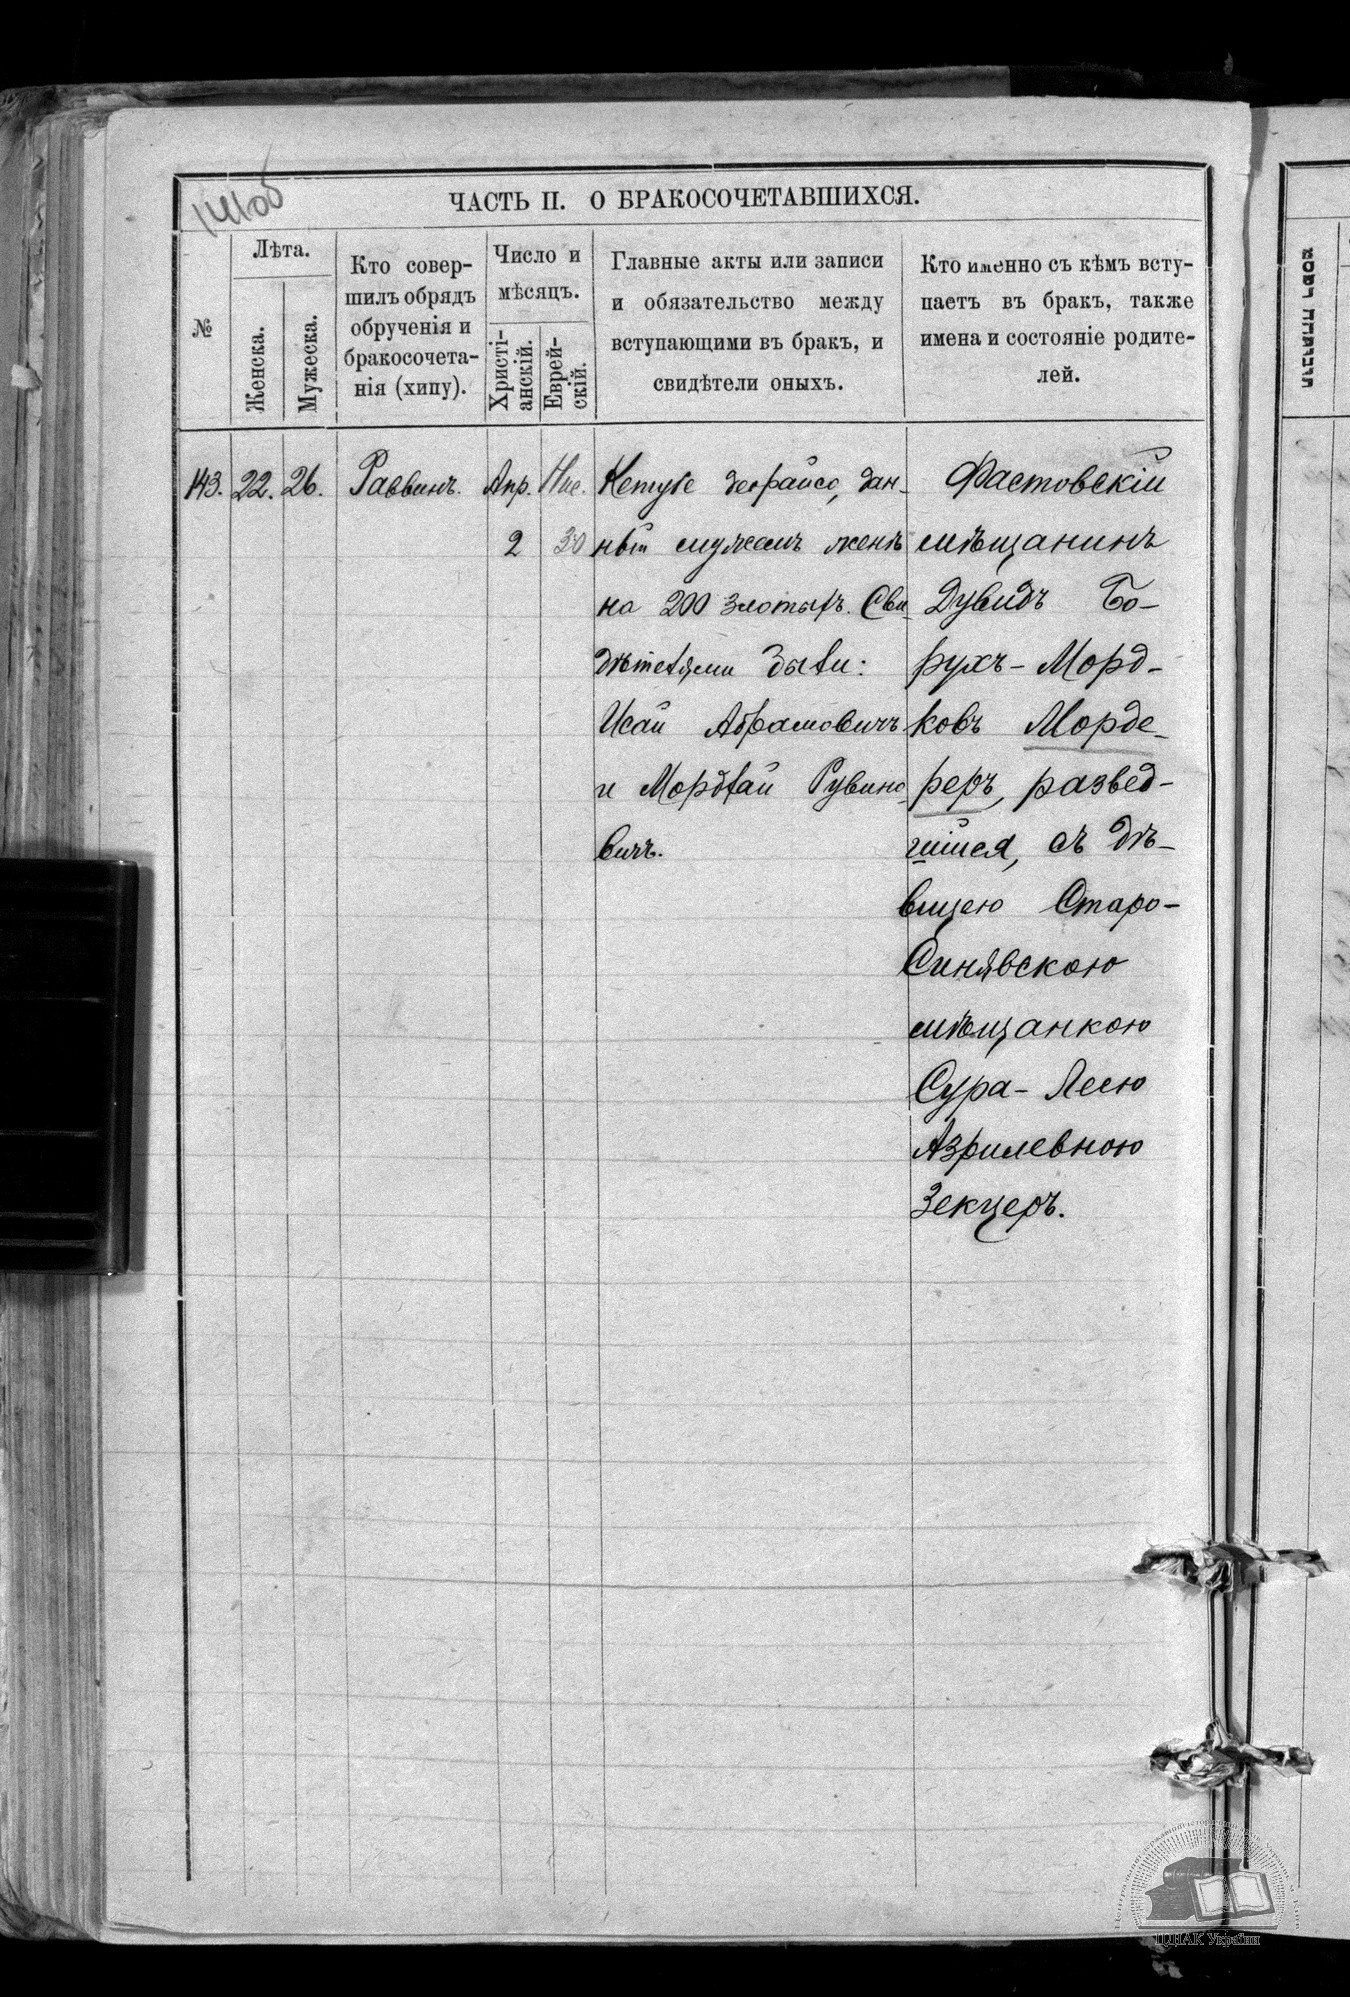 141об
ЧАСТЬ II. О БРАКОСОЧЕТАВШИХСЯ.
№
Лѣта.
Женска.
Мужеска.
Кто совер-
шилъ обрядъ
обрученія и
бракосочета-
нія (хипу).
Число и
мѣсяцъ.
Христі-
анскій.
Еврей-
скій.
Главные акты или записи
и обязательство между
вступающими въ бракъ, и
свидѣтели оныхъ.
Кто именно съ кѣмъ всту-
паетъ въ бракъ, также
имена и состояніе родите-
лей.
143.
22.
26.
Раввинъ.
Апр.
2
Нис.
30
Кетубе дан-
ный мужемъ женѣ
на 200 злотыхъ. Сви-
дѣтелями были:
Исай Абрамовичъ
и Мордхай Рувино-
вичъ.
Фастовскій
мѣщанинъ
Дувидъ Бо-
рухъ-Морд-
ковъ Морде-
реръ, развед-
шійся, съ дѣ-
вицею Старо-
Синявскою
мѣщанкою
Сура-Лею
Азрилевною
Зекцеръ.
ЦДІАК України